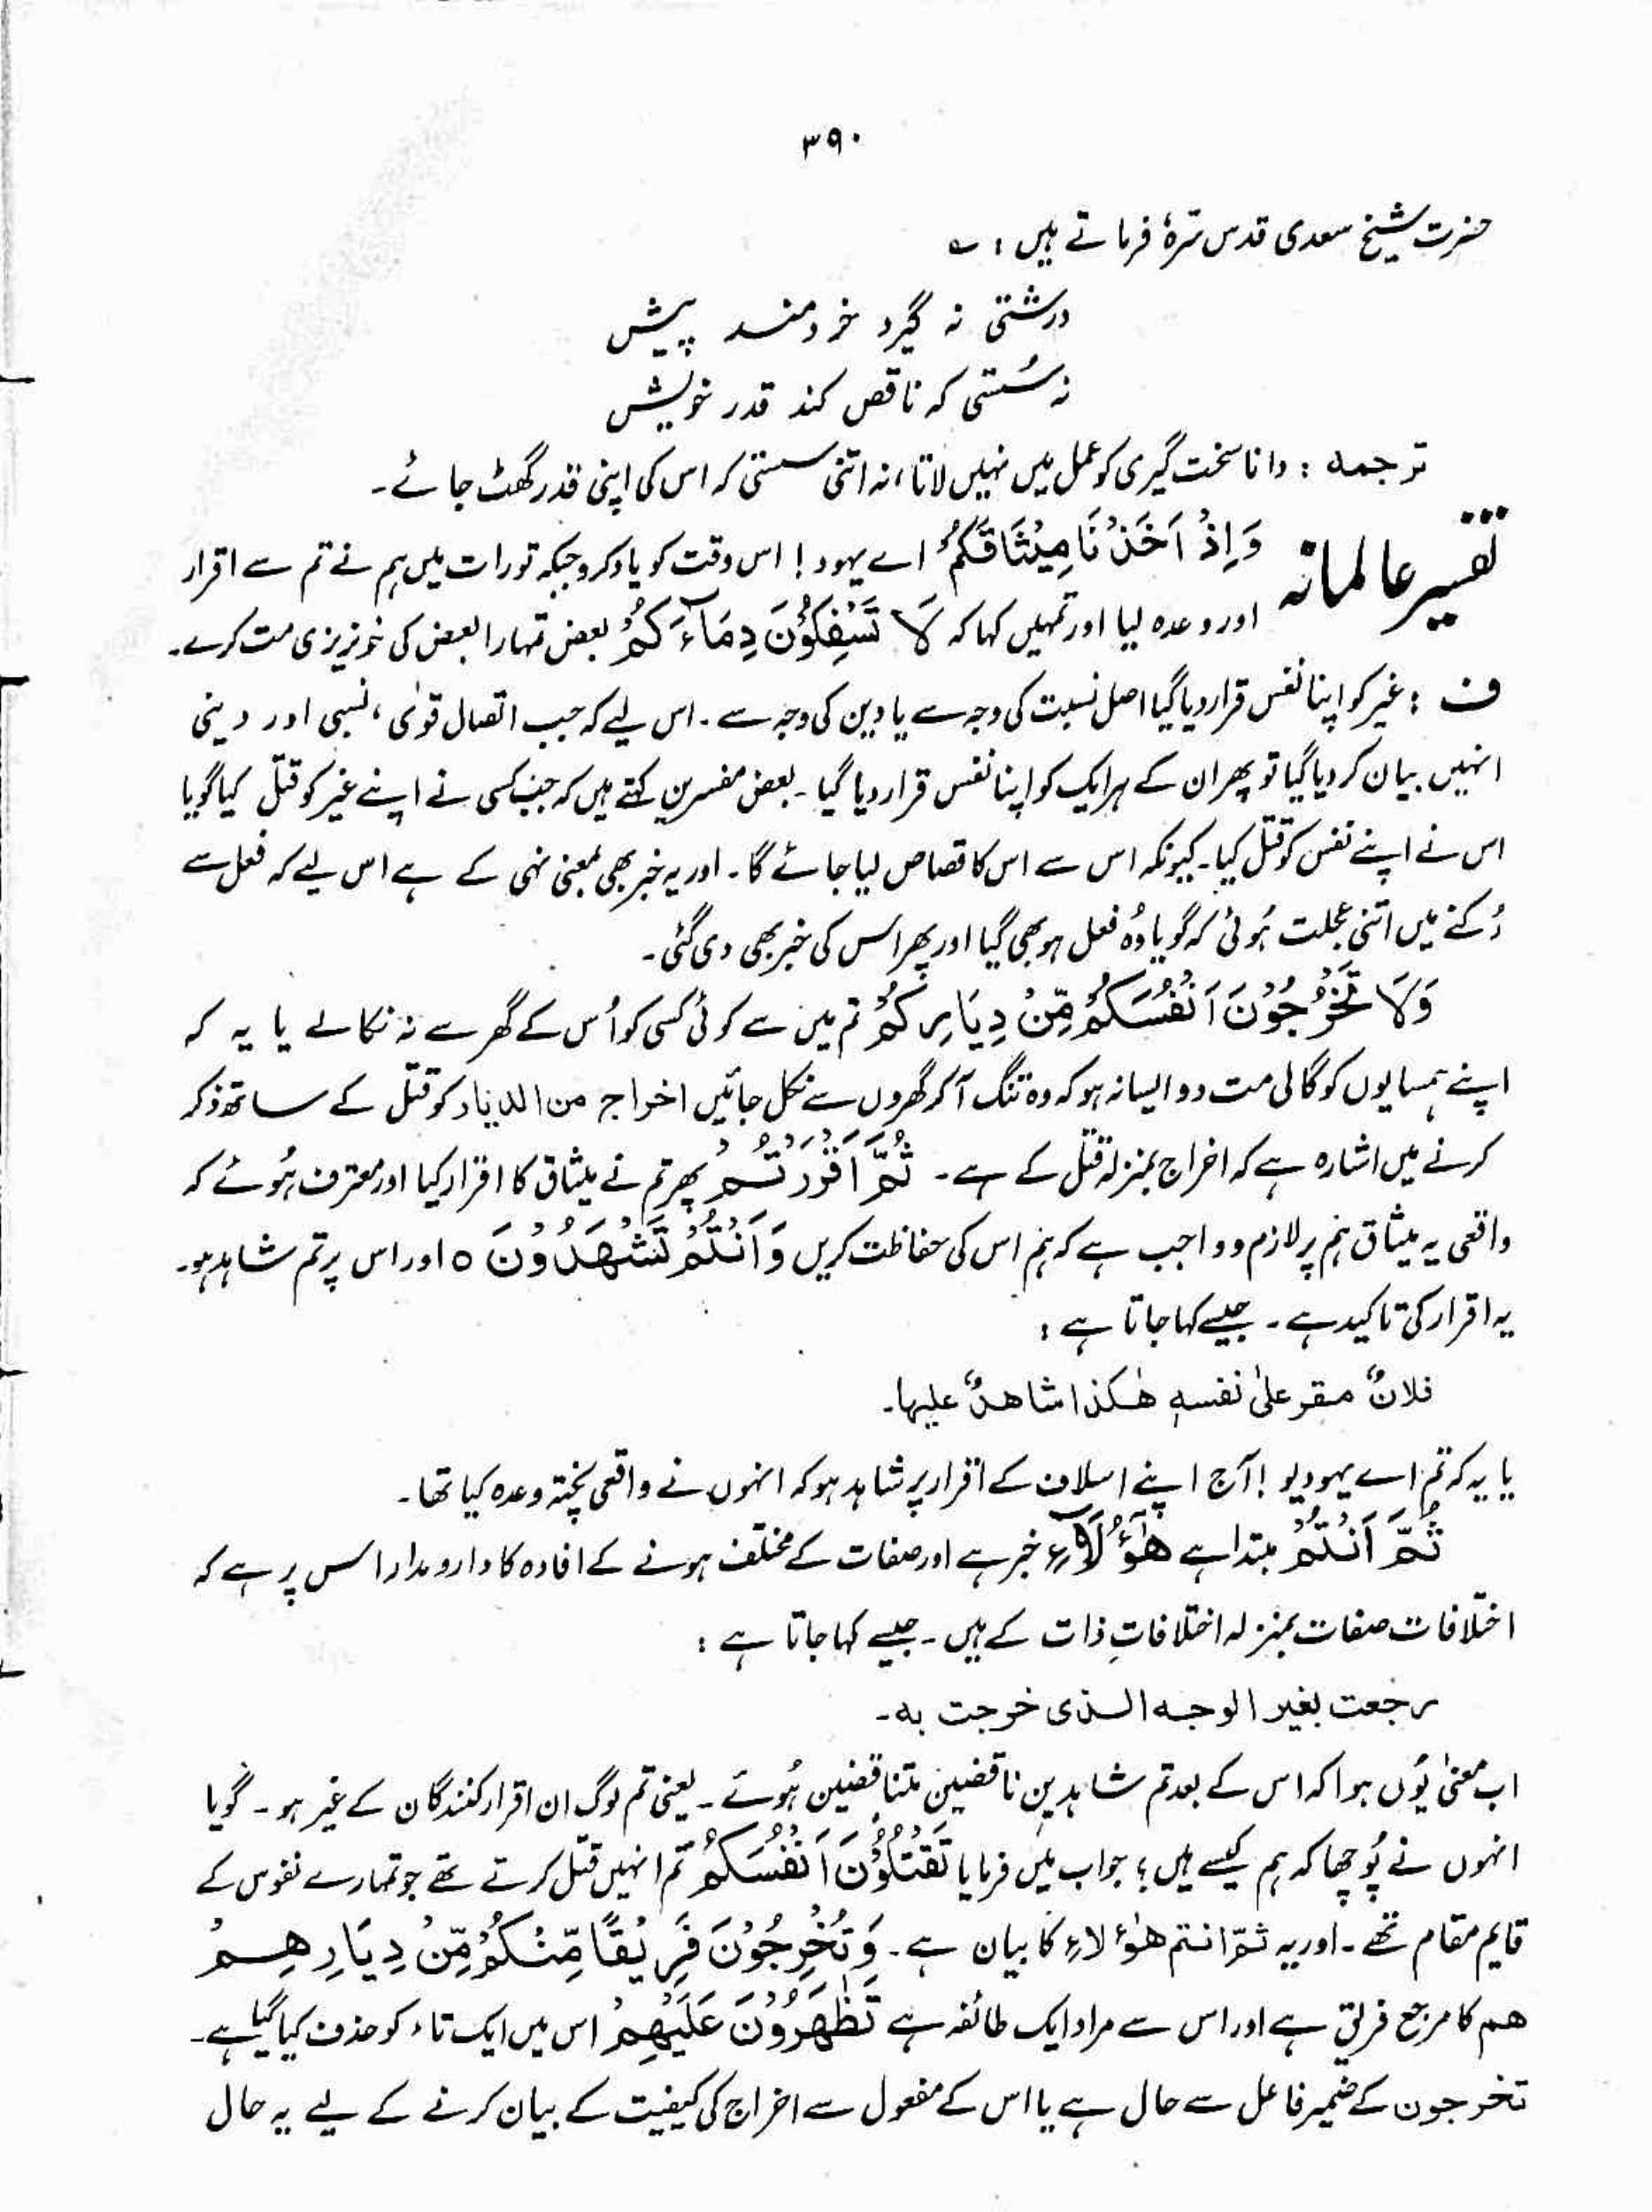 ۳۹۰
حضرت شیخ سعدی قدس سرہٗ فرماتے ہیں : ؎
درشتی نہ گیرد خردمند پیش
نہ سُستی کہ ناقص کند قدر خویش
ترجمہ : دانا سخت گیری کو عمل میں نہیں لاتا، نہ اتنی سستی کہ اس کی اپنی قدر گھٹ جائے۔
تفسیر عالمانہ وَاِذْ اَخَذْنَا مِيْثَاقَكُمْ اے یہود ! اس وقت کو یاد کرو جبکہ تورات میں ہم نے تم سے اقرار
اور وعدہ لیا اور تمہیں کہا کہ لَا تَسْفِكُوْنَ دِمَآءَكُمْ بعض تمہارا بعض کی خونریزی مت کرے۔
ف : غیر کو اپنا نفس قرار دیا گیا اصل نسبت کی وجہ سے یا دین کی وجہ سے ۔ اس لیے کہ جب اتصال قوٰی ، نسبی اور دینی
انہیں بیان کر دیا گیا تو پھر ان کے ہر ایک کو اپنا نفس قرار دیا گیا ۔ بعض مفسرین کہتے ہیں کہ جب کسی نے اپنے غیر کو قتل کیا گویا
اس نے اپنے نفس کو قتل کیا ۔ کیونکہ اس سے اس کا قصاص لیا جائے گا ۔ اور یہ خبر بھی بمعنی نہی کے ہے اس لیے کہ فعل سے
رُکنے میں اتنی عجلت ہُوئی کہ گویا وُہ فعل ہو بھی گیا اور پھر اس کی خبر بھی دی گئی ۔
وَلَا تُخْرِجُوْنَ اَنْفُسَكُمْ مِّنْ دِيَارِكُمْ تم میں سے کوئی کسی کو اُس کے گھر سے نہ نکالے یا یہ کہ
اپنے ہمسایوں کو گالی مت دو ایسا نہ ہو کہ وہ تنگ آ کر گھروں سے نکل جائیں اخراج من الدیار کو قتل کے ساتھ ذکر
کرنے میں اشارہ ہے کہ اخراج بمنزلہ قتل کے ہے ۔ ثُمَّ اَقْرَرْتُمْ پھر تم نے میثاق کا اقرار کیا اور معترف ہُوئے کہ
واقعی یہ میثاق ہم پر لازم و واجب ہے کہ ہم اس کی حفاظت کریں وَاَنْتُمْ تَشْهَدُوْنَ ○ اور اس پر تم شاہد ہو۔
یہ اقرار کی تاکید ہے ۔ جیسے کہا جاتا ہے :
فلانٌ مقر علیٰ نفسہٖ ھٰکذا شاھدٌ علیہا۔
یا یہ کہ تم اے یہودیو ! آج اپنے اسلاف کے اقرار پر شاہد ہو کہ انہوں نے واقعی پختہ وعدہ کیا تھا ۔
ثُمَّ اَنْتُمْ مبتدا ہے هٰٓؤُلَآءِ خبر ہے اور صفات کے مختلف ہونے کے افادہ کا دارومدار اس پر ہے کہ
اختلافات صفات بمنزلہ اختلافاتِ ذات کے ہیں ۔ جیسے کہا جاتا ہے :
رجعت بغیر الوجہ الذی خرجت بہ۔
اب معنیٰ یُوں ہوا کہ اس کے بعد تم شاہدین ناقضین متناقضین ہُوئے ۔ یعنی تم لوگ ان اقرار کنندگان کے غیر ہو ۔ گویا
انہوں نے پُوچھا کہ ہم کیسے ہیں ؟ جواب میں فرمایا تَقْتُلُوْنَ اَنْفُسَكُمْ تم انہیں قتل کرتے تھے جو تمہارے نفوس کے
قایم مقام تھے ۔ اور یہ ثمّ انتم ھٰؤلاء کا بیان ہے ۔ وَتُخْرِجُوْنَ فَرِيْقًا مِّنْكُمْ مِّنْ دِيَارِهِمْ
ھم کا مرجع فریق ہے اور اس سے مراد ایک طائفہ ہے تَظٰهَرُوْنَ عَلَيْهِمْ اس میں ایک تاء کو حذف کیا گیا ہے۔
تخرجون کے ضمیر فاعل سے حال ہے یا اس کے مفعول سے اخراج کی کیفیت کے بیان کرنے کے لیے یہ حال